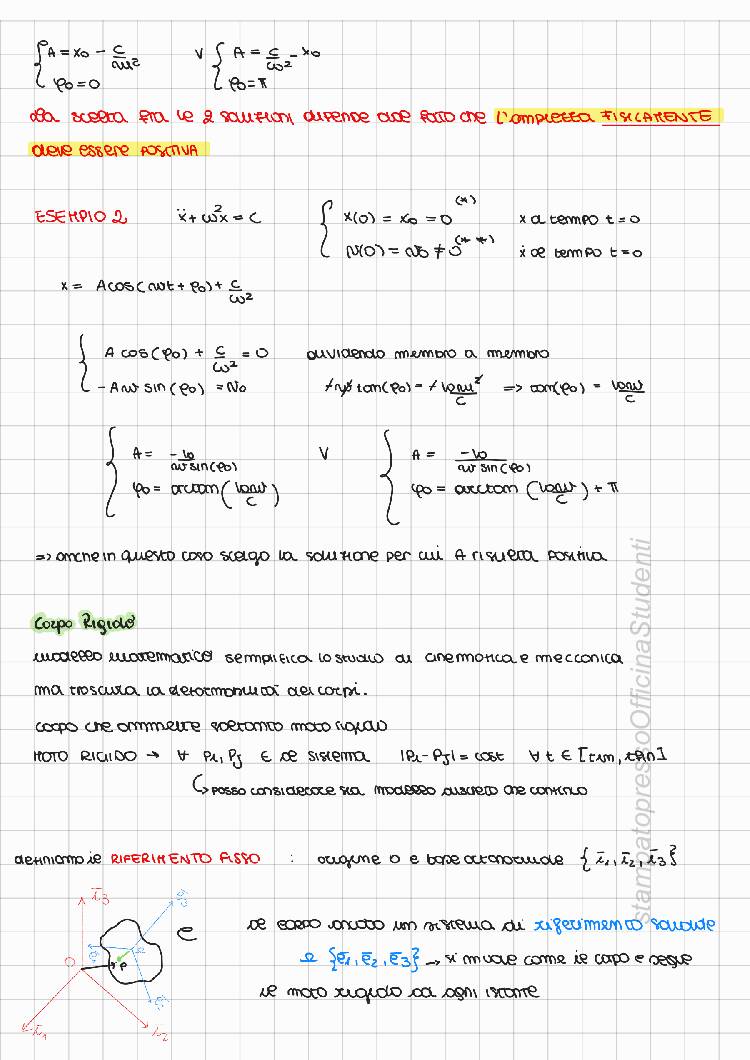 { A = x0 - c/ω² V { A = c/ω² - x0
{ φ0 = 0 { φ0 = π
La scelta fra le 2 soluzioni, dipende dal fatto che l'ampiezza FISICAMENTE
deve essere POSITIVA
ESEMPIO 2 ẍ + ω²x = c { x(0) = x0 = 0 (*) x al tempo t=0
{ v(0) = v0 ≠ 0 (**) ẋ al tempo t=0
x = A cos(ωt + φ0) + c/ω²
{ A cos(φ0) + c/ω² = 0 dividendo membro a membro
{ -Aω sin(φ0) = v0 ≠ω tan(φ0) = ≠ v0ω²/c => tan(φ0) = v0ω/c
{ A = -v0/(ω sin(φ0)) V { A = -v0/(ω sin(φ0))
{ φ0 = arctan(v0ω/c) { φ0 = arctan(v0ω/c) + π
=> anche in questo caso scelgo la soluzione per cui A risulta positiva
Corpo Rigido
modello matematico semplifica lo studio di cinematica e meccanica
ma trascura la deformabilità dei corpi.
corpo che ammette soltanto moto rigido
MOTO RIGIDO → ∀ Pi, Pj ∈ al sistema |Pi - Pj| = cost ∀ t ∈ [tin, tfin]
↳ posso considerare sia modello discreto che continuo
definiamo il RIFERIMENTO FISSO : origine O e base ortonormale {ī1, ī2, ī3}
ī3
ē3
e
ē2
Ω
O
P
ē1
ī1
ī2
al corpo un sistema di riferimento solidale
Ω {ē1, ē2, ē3} → si muove come il corpo e segue
il moto rigido ad ogni istante
stampatopressoOfficinaStudenti